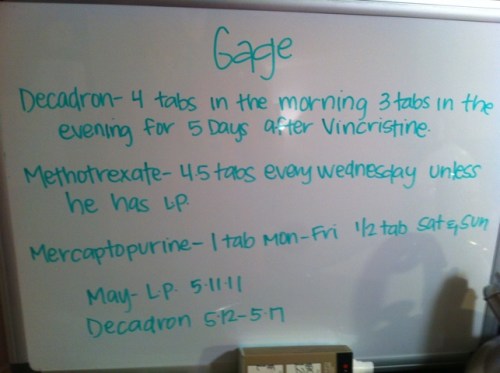 Gage
Decadron- 4 tabs in the morning 3 tabs in the
evening for 5 Days after Vincristine.
Methotrexate- 4.5 tabs every wednesday unless
he has LP.
Mercaptopurine- 1 tab Mon-Fri 1/2 tab Sat & Sun
May- L.P. 5.11.11
Decadron 5.12-5.17